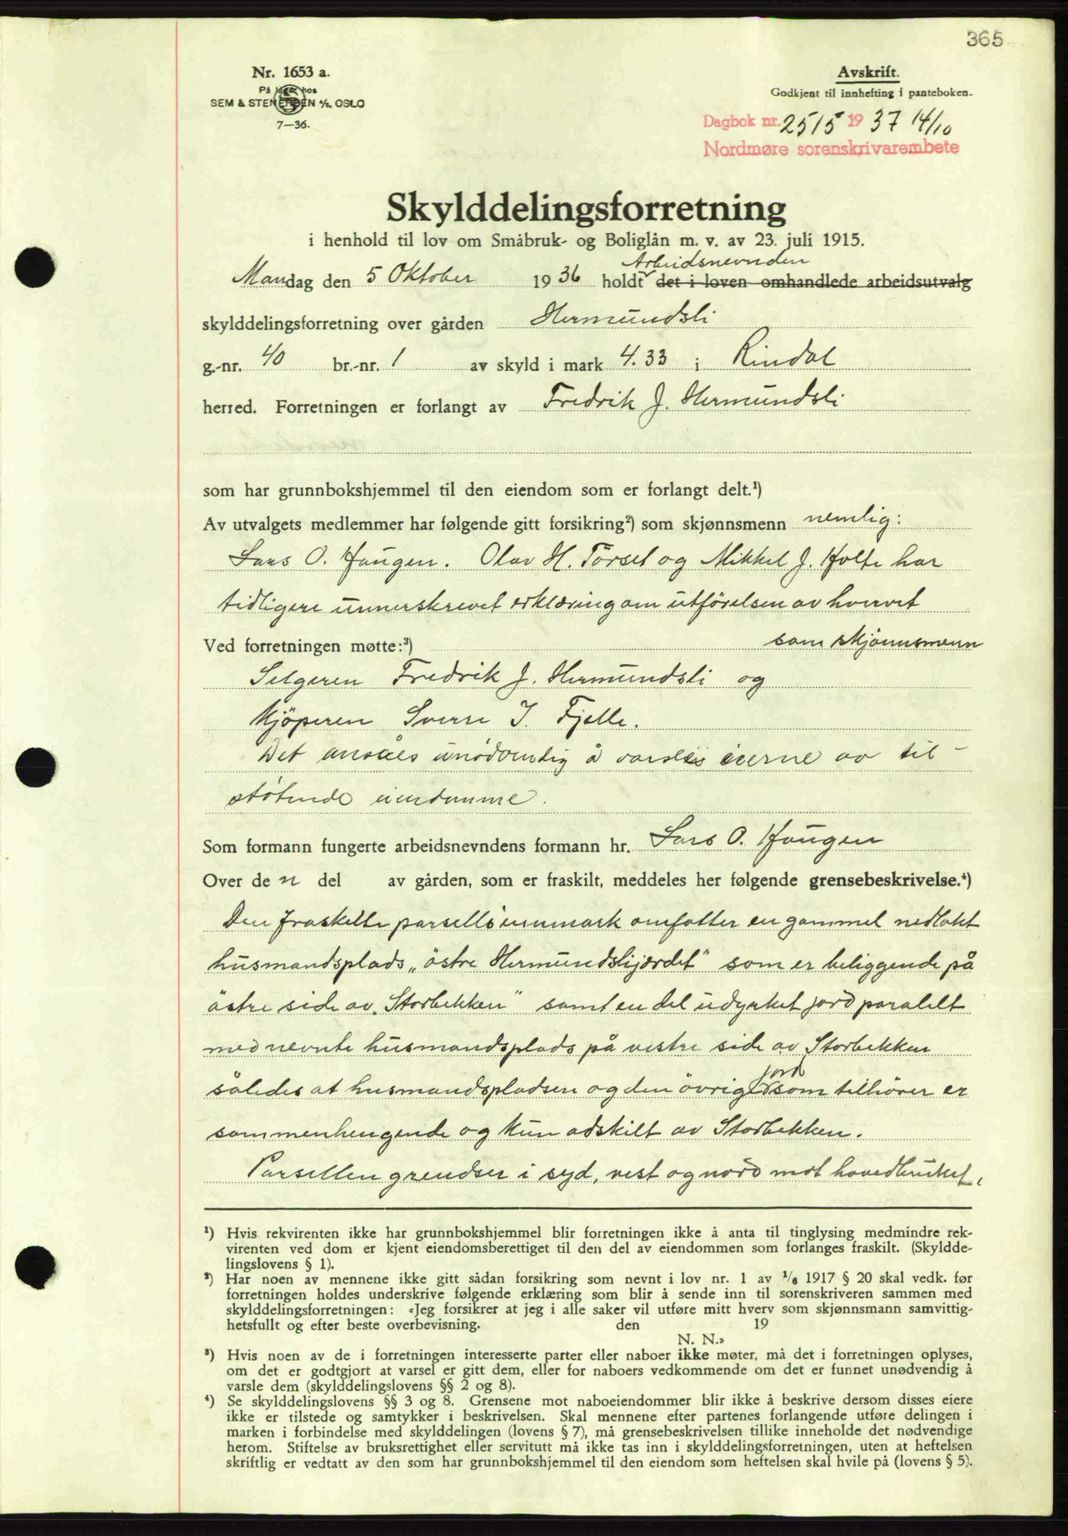 365
Nr. 1653 a.
På lager hos
SEM & STENERSEN A/S, OSLO
7—36.
Avskrift.
Godkjent til innhefting i panteboken.
Dagbok nr. 2515 1937 14/10
Nordmøre sorenskrivarembete
Skylddelingsforretning
i henhold til lov om Småbruk- og Boliglån m. v. av 23. juli 1915.
Arbeidsnevnden
Mandag den 5 Oktober 1936 holdt det i loven omhandlede arbeidsutvalg
skylddelingsforretning over gården Hermundsli
g.-nr. 40 br.-nr. 1 av skyld i mark 4.33 i Rindal
herred. Forretningen er forlangt av Fredrik J. Hermundsli
som har grunnbokshjemmel til den eiendom som er forlangt delt.¹)
Av utvalgets medlemmer har følgende gitt forsikring²) som skjønnsmenn nemlig:
Lars O. Haugen. Olav H. Törset og Mikkel J. Holte har
tidligere unnerskrevet erklæring om utförelsen av hvervet
Ved forretningen møtte:³) som skjönnsmenn
Selgeren Fredrik J. Hermundsli og
kjöperen Sverre I. Fjelle.
Det ansåes unödvendig å varsle eierne av til-
støtende eiendomme.
Som formann fungerte arbeidsnevndens formann hr. Lars O. Haugen
Over den del av gården, som er fraskilt, meddeles her følgende grensebeskrivelse.⁴)
Den fraskelte parsells innmark omfatter en gammel nedlakt
husmandsplads „östre Hermundslijordet" som er beliggende på
östre side av „Storbekken" samt en del udyrket jord paralelt
med nevnte husmandsplads på vestre side av Storbekken
således at husmandspladsen og den övrige jord som tilhörer er
sammenhengende og kun adskilt av Storbekken.
Parsellen grendser i syd, vest og nord mot hovedbruket,
¹) Hvis rekvirenten ikke har grunnbokshjemmel blir forretningen ikke å anta til tinglysing medmindre rek-
virenten ved dom er kjent eiendomsberettiget til den del av eiendommen som forlanges fraskilt. (Skyldde-
lingslovens § 1).
²) Har noen av mennene ikke gitt sådan forsikring som nevnt i lov nr. 1 av ¹/₆ 1917 § 20 skal vedk. før
forretningen holdes underskrive følgende erklæring som blir å sende inn til sorenskriveren sammen med
skylddelingsforretningen: «Jeg forsikrer at jeg i alle saker vil utføre mitt hverv som skjønnsmann samvittig-
hetsfullt og efter beste overbevisning. den 19
N. N.»
³) Hvis noen av de i forretningen interesserte parter eller naboer ikke møter, må det i forretningen oplyses,
om det er godtgjort at varsel er gitt dem, eller for naboers vedkommende om det er funnet unødvendig å
varsle dem (skylddelingslovens §§ 2 og 8).
⁴) Se skylddelingslovens §§ 3 og 8. Grensene mot naboeiendommer blir ikke å beskrive dersom disses eiere
ikke er tilstede og samtykker i beskrivelsen. Skal mennene efter partenes forlangende utføre delingen i
marken i forbindelse med skylddelingen (lovens § 7), må grensebeskrivelsen tillike inneholde det nødvendige
herom. Stiftelse av bruksrettighet eller servitutt må ikke tas inn i skylddelingsforretningen, uten at heftelsen
skriftlig er vedtatt av den som har grunnbokshjemmel til den eiendom som heftelsen skal hvile på (lovens § 5).